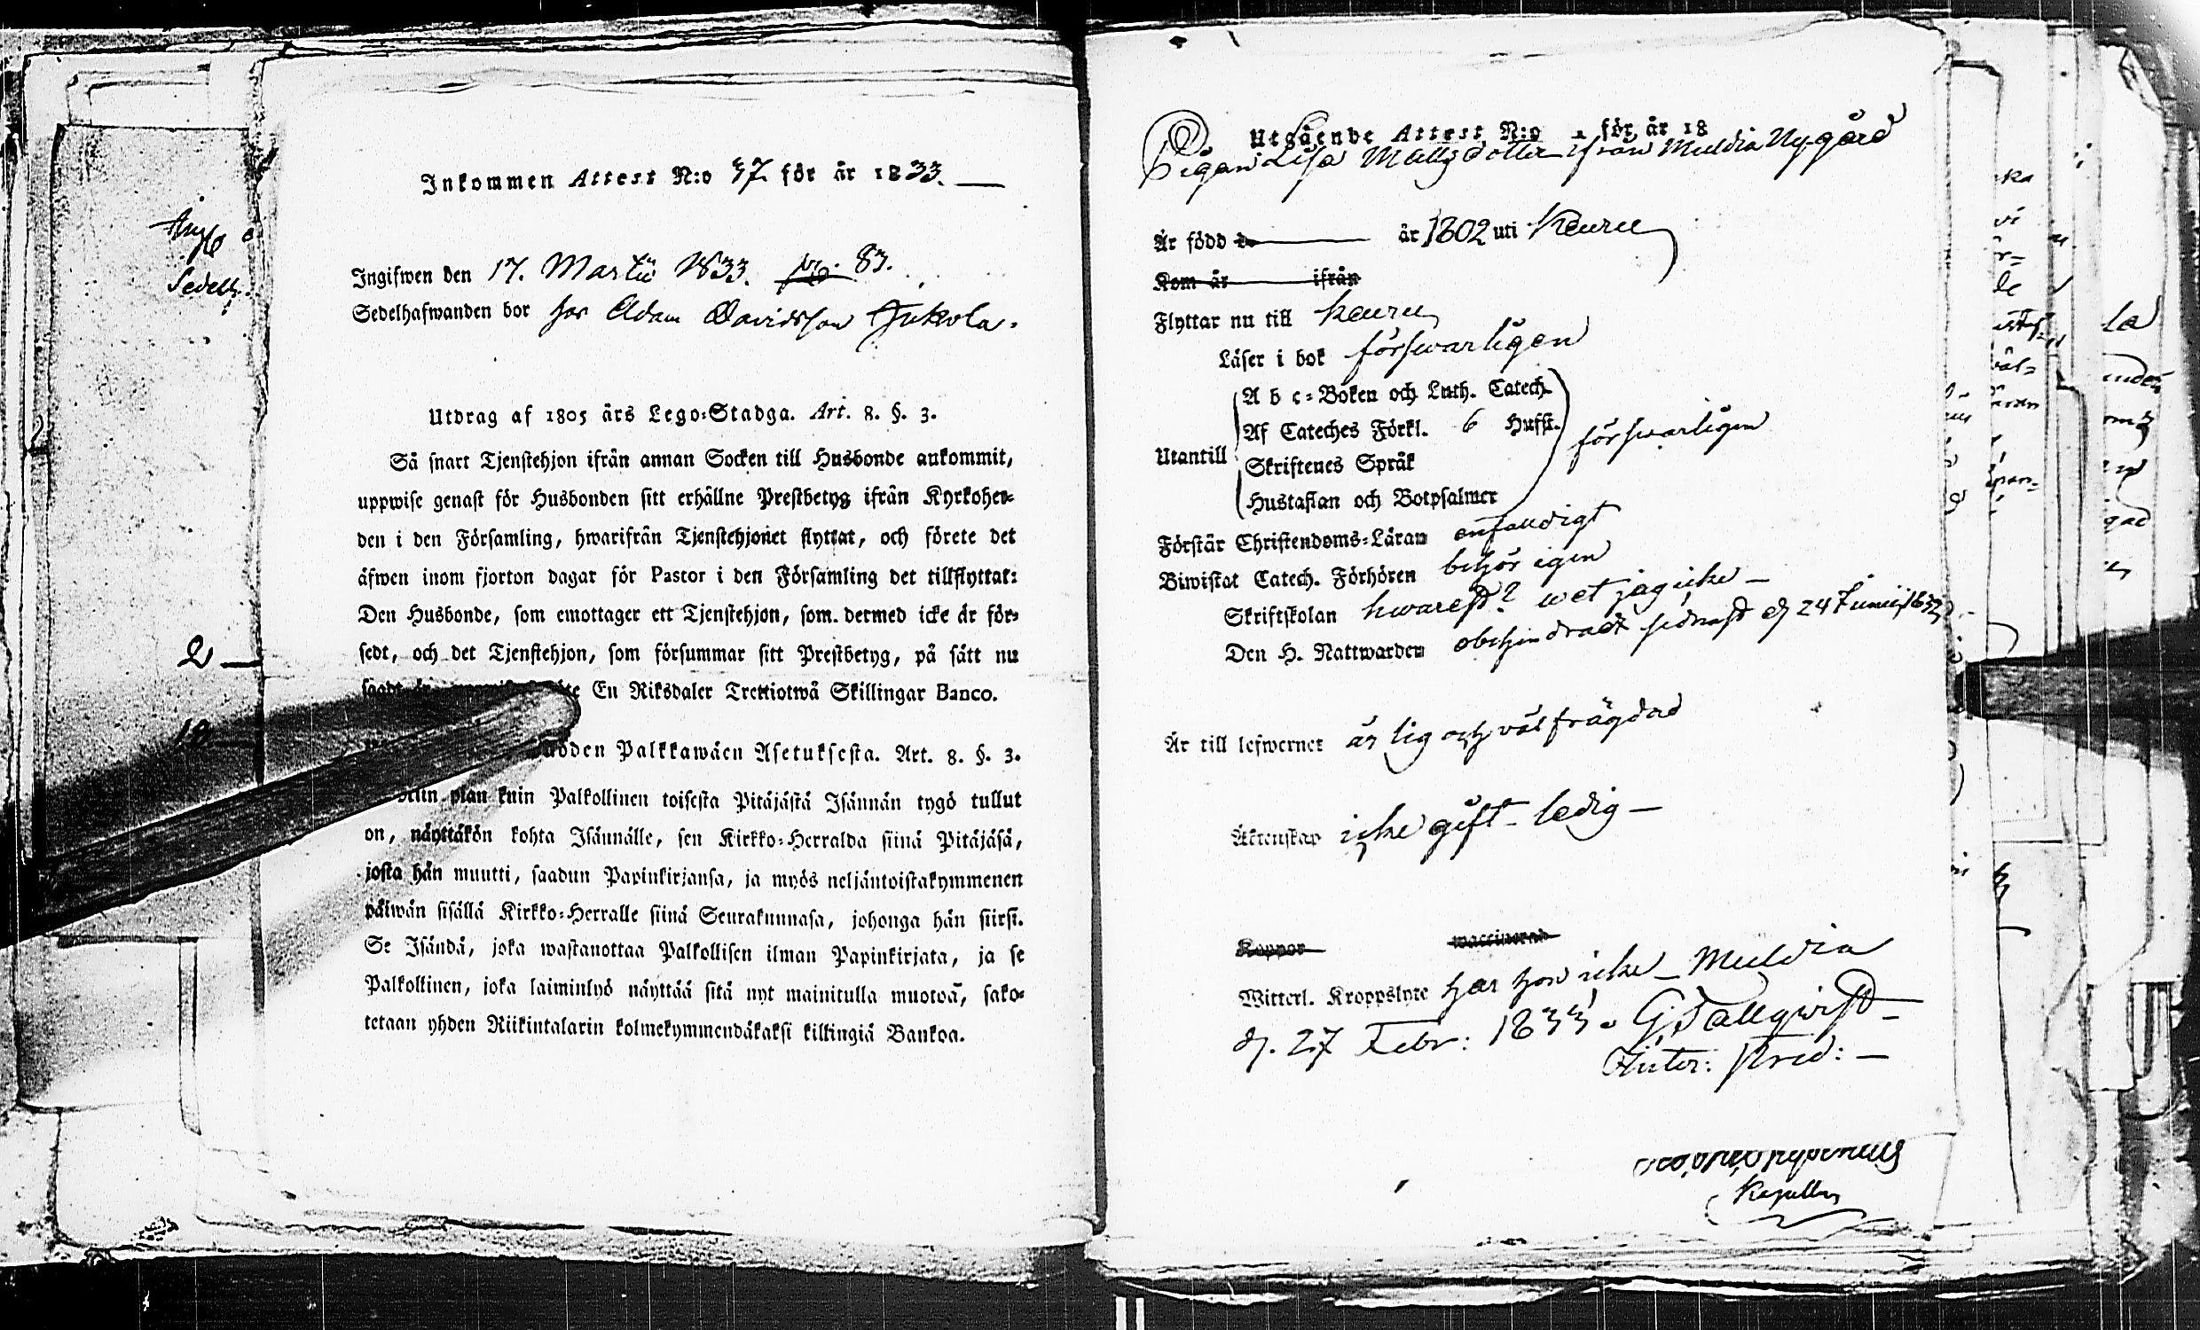 Inkommen Attest N:o 47. för år 1833.
Ingifwen den 17. Martii 1833. 83.
Sedelhafwanden bor hos Adam Davidsson Jukola.
Utdrag af 1805 års Lego-Stadga. Art. 8. §. 3.
Så snart Tjenstehjon ifrån annan Socken till Husbonde ankommit,
uppwise genast för Husbonden sitt erhållne Prestbetyg ifrån Kyrkoher-
den i den Församling, hwarifrån Tjenstehjonet flyttat, och förete det
äfwen inom fjorton dagar för Pastor i den Församling det tillflyttat:
Den Husbonde, som emottager ett Tjenstehjon, som dermed icke är för-
sedt, och det Tjenstehjon, som försummar sitt Prestbetyg, på sätt nu
En Riksdaler Trettiotwå Skillingar Banco.
Palkkawäen Asetuksesta. Art. 8. §. 3.
pian kuin Palkollinen toisesta Pitäjästä Isännän tygö tullut
on, näyttäkön kohta Isännälle, sen Kirkko-Herralda siinä Pitäjäsä,
josta hän muutti, saadun Papinkirjansa, ja myös neljäntoistakymmenen
päiwän sisällä Kirkko-Herralle siinä Seurakunnasa, johonga hän siirsi.
Se Isändä, joka wastanottaa Palkollisen ilman Papinkirjata, ja se
Palkollinen, joka laiminlyö näyttää sitä nyt mainitulla muotoa, sako-
tetaan yhden Riikintalarin kolmekymmendäkaksi killingiä Bankoa.
Sedell
2
18
Utgående Attest N:o för år 18
Pigan Lisa Mattsdotter ifrån Muldia Nygård
Är född år 1802 uti Keuru
Kom år ifrån
Flyttar nu till Keuru
Läser i bok försvarligen
A b c-Boken och Luth. Catech.
Af Cateches Förkl. 6 Hufst.
Utantill försvarligen
Skriftenes Språk
Hustaflan och Botpsalmer
Förstår Christendoms-Läran enfaldigt
Biwistat Catech. Förhören behörigen
Skriftskolan hwarest? wet jag icke
Den H. Nattwarden obehindradt sidnast d. 24 Junii 1832
Är till lefwernet ärlig och välfrägdad
Äktenskap icke gift – ledig –
Koppor waccinerad
Witterl. Kroppslyte har hon icke – Muldia
d. 27 Febr: 1833. G Tallqvist